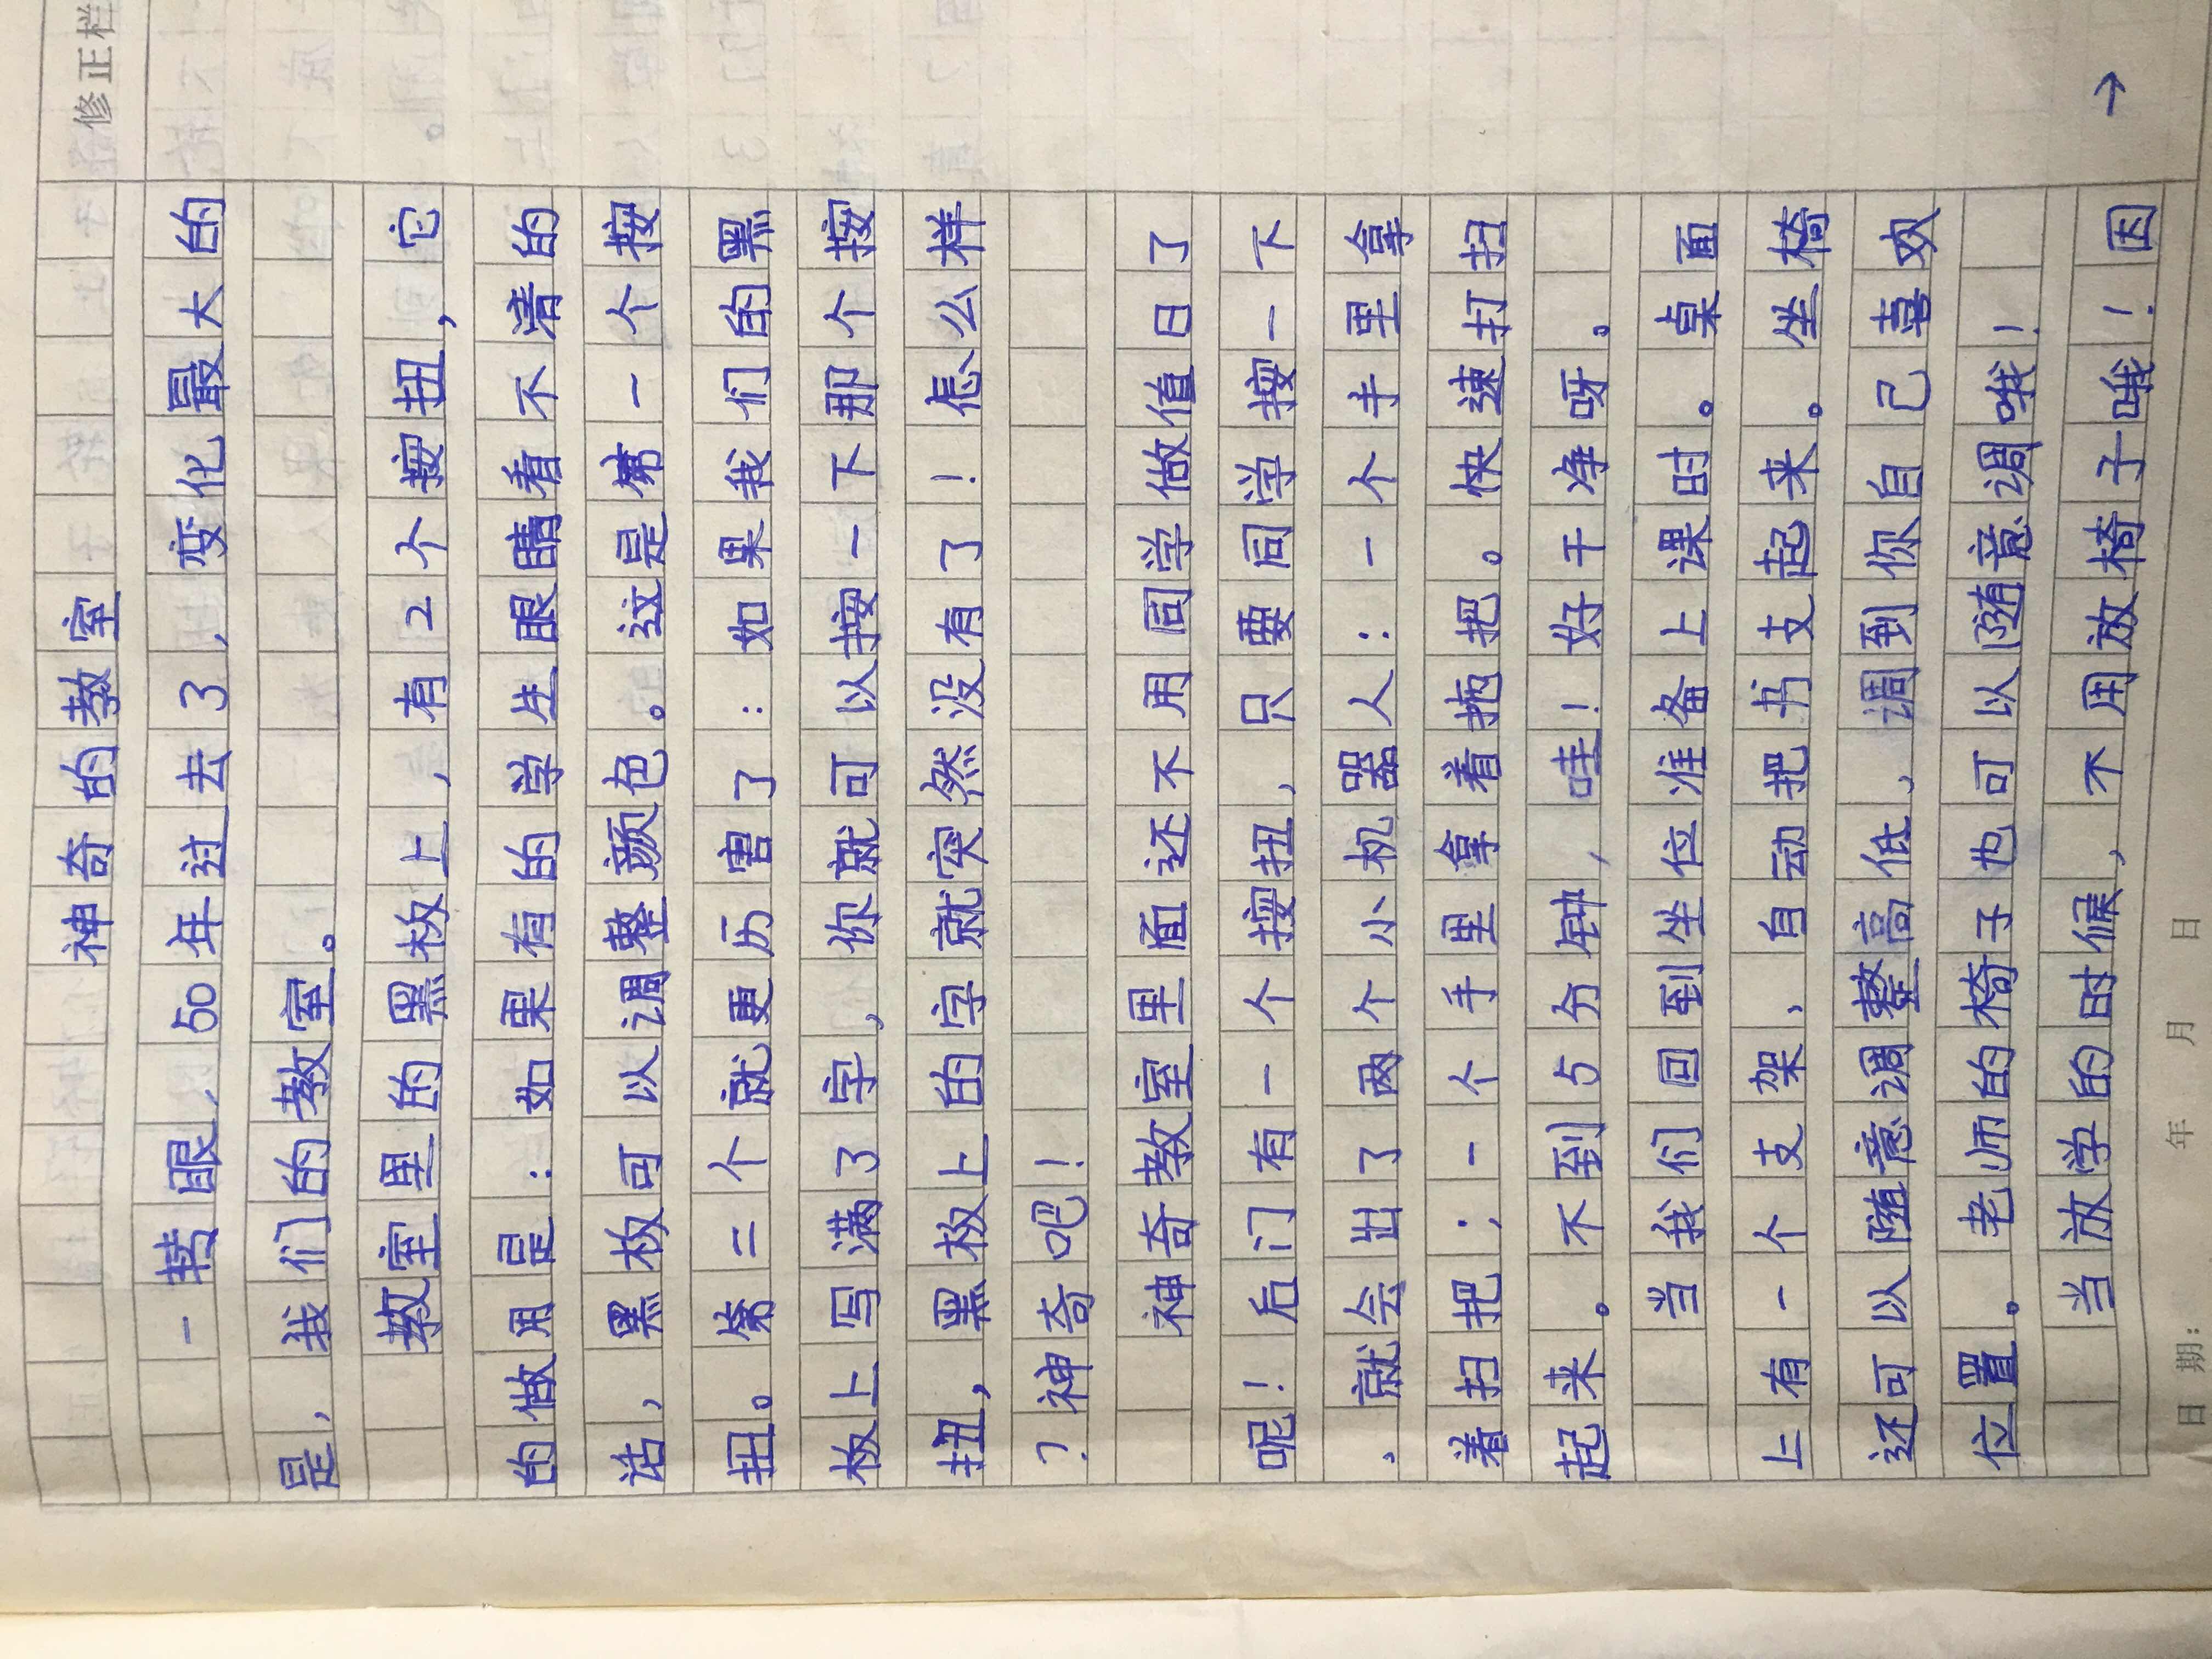 修正栏
神奇的教室
一转眼，50年过去了，变化最大的
是，我们的教室。
教室里的黑板上，有2个按扭，它
的做用是：如果有的学生眼睛看不清的
话，黑板可以调整颜色。这是第一个按
扭。第二个就更历害了：如果我们的黑
板上写满了字，你就可以按一下那个按
扭，黑板上的字就突然没有了！怎么样
？神奇吧！
神奇教室里面还不用同学做值日了
呢！后门有一个按扭，只要同学按一下
，就会出了两个小机器人：一个手里拿
着扫把；一个手里拿着拖把。快速打扫
起来。不到5分钟，哇！好干净呀。
当我们回到坐位准备上课时。桌面
上有一个支架，自动把书支起来。坐椅
还可以随意调整高低，调到你自己喜欢
位置。老师的椅子也可以随意调哦！
当放学的时候，不用放椅子哦！因
→
日期： 年 月 日